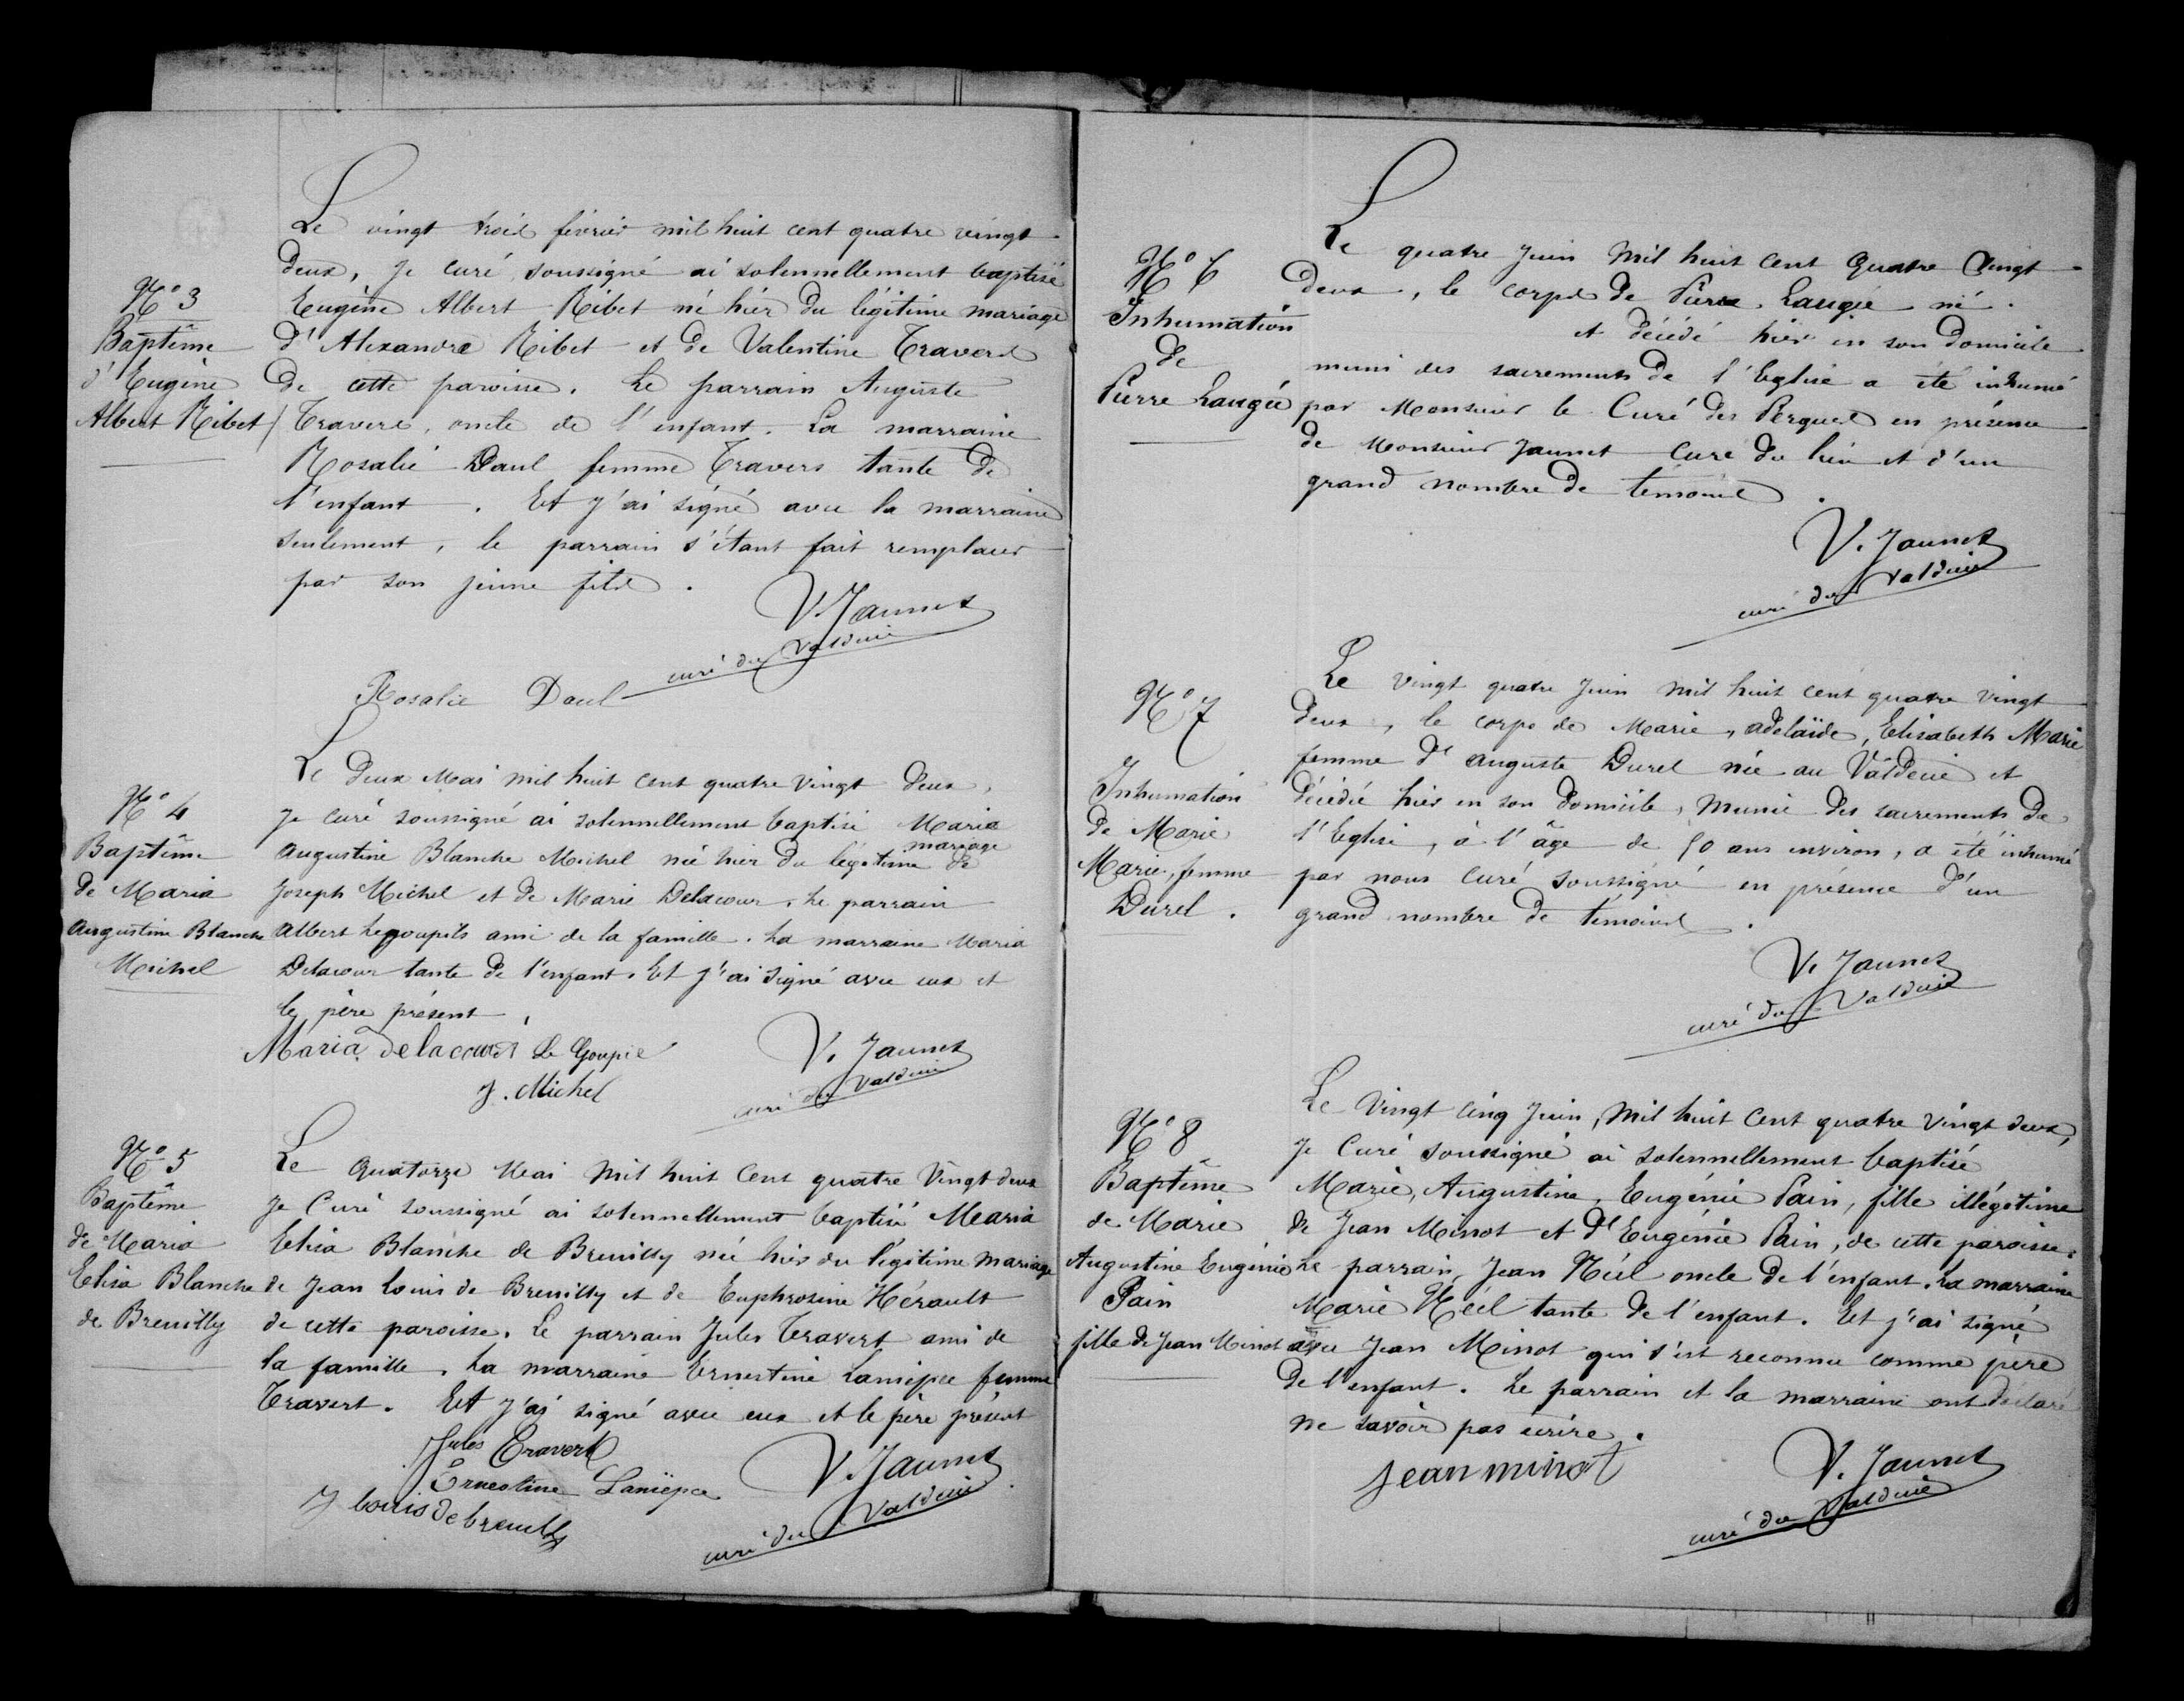 N° 3
Baptême
d'Eugène
Albert Ribet
Le vingt trois février mil huit cent quatre vingt
deux, je curé soussigné ai solennellement baptisé
Eugène Albert Ribet né hier du légitime mariage
d'Alexandre Ribet et de Valentine Travers
de cette paroisse. Le parrain Auguste
Travers, oncle de l'enfant. La marraine
Rosalie Daul femme Travers tante de
l'enfant. Et j'ai signé avec la marraine
seulement, le parrain s'étant fait remplacer
par son jeune fils.
V. Jaunet
curé du Valdecie
Rosalie Daul
N° 4
Baptême
de Maria
Augustine Blanche
Michel
Le deux Mai mil huit cent quatre vingt deux,
je curé soussigné ai solennellement baptisé Maria
mariage
Augustine Blanche Michel née hier du légitime de
Joseph Michel et de Marie Delacour. Le parrain
Albert Legoupils ami de la famille. La marraine Maria
Delacour tante de l'enfant. Et j'ai signé avec eux et
le père présent.
Maria Delacour Le Goupil
J. Michel
V. Jaunet
curé du Valdecie
N° 5
Baptême
de Maria
Elisa Blanche
de Breuilly
Le quatorze Mai mil huit cent quatre vingt deux
je Curé soussigné ai solennellement baptisé Maria
Elisa Blanche de Breuilly née hier du légitime mariage
de Jean Louis de Breuilly et de Euphrosine Hérault
de cette paroisse. Le parrain Jules Travert ami de
la famille. La marraine Ernestine Laniepce femme
Travert. Et j'ai signé avec eux et le père présent
Jules Travert
Ernestine Laniëpce
J louis de breuilly
V. Jaunet
curé du Valdecie
N° 6
Inhumation
de
Pierre Laugié
Le quatre Juin Mil huit cent quatre vingt
deux, le corps de Pierre Laugié né.
et décédé hier en son domicile
muni des sacrements de l'Eglise a été inhumé
par Monsieur le Curé des Perques en présence
de Monsieur Jaunet Curé du lieu et d'un
grand nombre de témoins.
V. Jaunet
curé du Valdecie
N° 7
Inhumation
de Marie
Marie, femme
Durel.
Le vingt quatre Juin mil huit cent quatre vingt
deux, le corps de Marie, Adelaïde, Elisabeth Marie
femme d'Auguste Durel née au Valdecie et
décédée hier en son domicile, munie des sacrements de
l'Eglise, à l'âge de 50 ans environ, a été inhumé
par nous Curé soussigné en présence d'un
grand nombre de témoins.
V. Jaunet
curé du Valdecie
N° 8
Baptême
de Marie
Augustine Eugénie
Pain
fille de Jean Minot
Le Vingt Cinq Juin, Mil huit Cent quatre vingt deux,
je Curé soussigné ai solennellement baptisé
Marie, Augustine, Eugénie Pain, fille illégitime
de Jean Minot et d'Eugénie Pain, de cette paroisse.
Le parrain, Jean Néel oncle de l'enfant. La marraine
Marie Néel tante de l'enfant. Et j'ai signé
avec Jean Minot qui s'est reconnu comme père
de l'enfant. Le parrain et la marraine ont déclaré
ne savoir pas écrire.
jean minot
V. Jaunet
curé du Valdecie